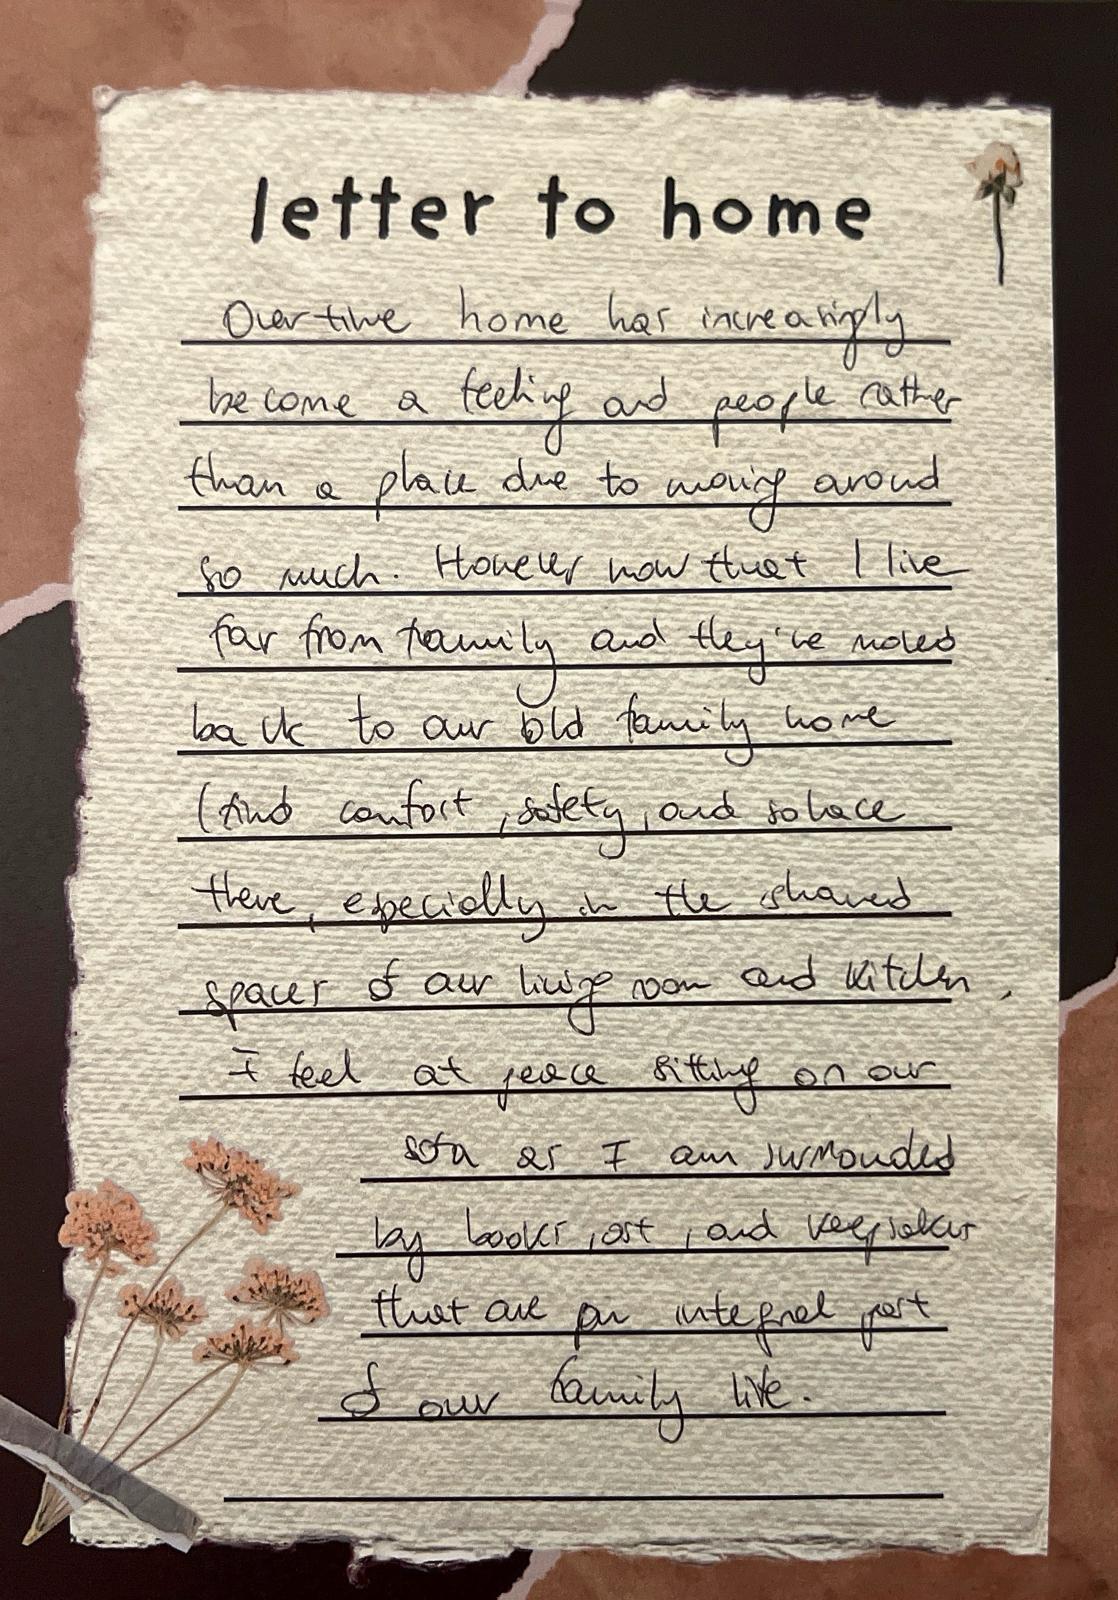 letter to home
Over time home has increasingly
become a feeling and people rather
than a place due to moving around
so much. However now that I live
far from family and they've moved
back to our old family home
I find comfort, safety, and solace
there, especially in the shared
spaces of our living room and kitchen,
I feel at peace sitting on our
sofa as I am surrounded
by books, art, and keepsakes
that are an integral part
of our family life.